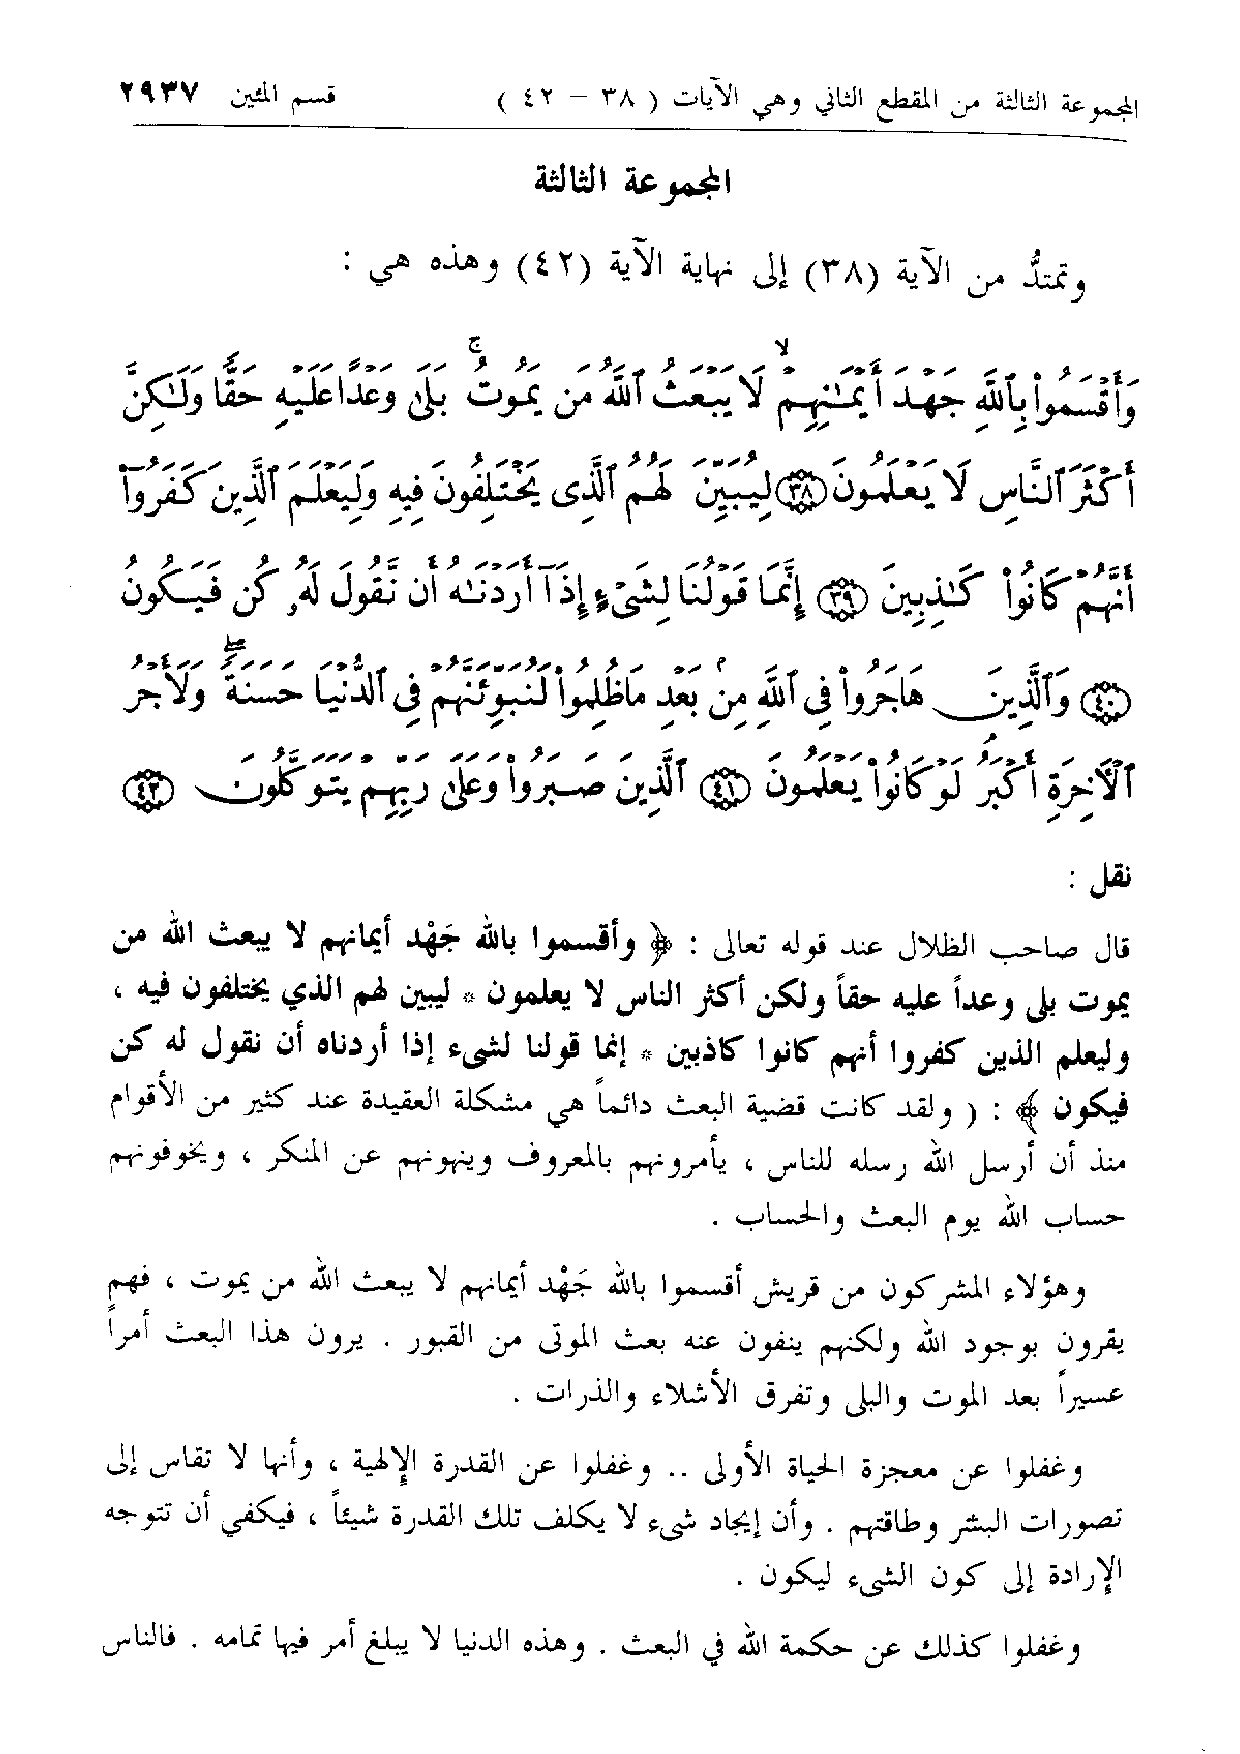 المجموعة الثالثة من المقطع الثاني وهي الآيات ( ٣٨ – ٤٢ ) قسم المئين ٢٩٣٧
المجموعة الثالثة
وتمتدُّ من الآية (٣٨) إلى نهاية الآية (٤٢) وهذه هي :
وَأَقْسَمُوا۟ بِٱللَّهِ جَهْدَ أَيْمَـٰنِهِمْ ۙ لَا يَبْعَثُ ٱللَّهُ مَن يَمُوتُ ۚ بَلَىٰ وَعْدًا عَلَيْهِ حَقًّا وَلَـٰكِنَّ
أَكْثَرَ ٱلنَّاسِ لَا يَعْلَمُونَ ﴿٣٨﴾ لِيُبَيِّنَ لَهُمُ ٱلَّذِى يَخْتَلِفُونَ فِيهِ وَلِيَعْلَمَ ٱلَّذِينَ كَفَرُوٓا۟
أَنَّهُمْ كَانُوا۟ كَـٰذِبِينَ ﴿٣٩﴾ إِنَّمَا قَوْلُنَا لِشَىْءٍ إِذَآ أَرَدْنَـٰهُ أَن نَّقُولَ لَهُۥ كُن فَيَكُونُ
﴿٤٠﴾ وَٱلَّذِينَ هَاجَرُوا۟ فِى ٱللَّهِ مِنۢ بَعْدِ مَا ظُلِمُوا۟ لَنُبَوِّئَنَّهُمْ فِى ٱلدُّنْيَا حَسَنَةً ۖ وَلَأَجْرُ
ٱلْـَٔاخِرَةِ أَكْبَرُ ۚ لَوْ كَانُوا۟ يَعْلَمُونَ ﴿٤١﴾ ٱلَّذِينَ صَبَرُوا۟ وَعَلَىٰ رَبِّهِمْ يَتَوَكَّلُونَ ﴿٤٢﴾
نقل :
قال صاحب الظلال عند قوله تعالى : ﴿ وأقسموا بالله جَهْد أيمانهم لا يبعث الله من
يموت بلى وعداً عليه حقاً ولكن أكثر الناس لا يعلمون * ليبين لهم الذي يختلفون فيه ،
وليعلم الذين كفروا أنهم كانوا كاذبين * إنما قولنا لشيء إذا أردناه أن نقول له كن
فيكون ﴾ : ( ولقد كانت قضية البعث دائماً هي مشكلة العقيدة عند كثير من الأقوام
منذ أن أرسل الله رسله للناس ، يأمرونهم بالمعروف وينهونهم عن المنكر ، ويخوفونهم
حساب الله يوم البعث والحساب .
وهؤلاء المشركون من قريش أقسموا بالله جَهْد أيمانهم لا يبعث الله من يموت ، فهم
يقرون بوجود الله ولكنهم ينفون عنه بعث الموتى من القبور . يرون هذا البعث أمراً
عسيراً بعد الموت والبلى وتفرق الأشلاء والذرات .
وغفلوا عن معجزة الحياة الأولى .. وغفلوا عن القدرة الإلهية ، وأنها لا تقاس إلى
تصورات البشر وطاقتهم . وأن إيجاد شيء لا يكلف تلك القدرة شيئاً ، فيكفي أن تتوجه
الإرادة إلى كون الشيء ليكون .
وغفلوا كذلك عن حكمة الله في البعث . وهذه الدنيا لا يبلغ أمر فيها تمامه . فالناس